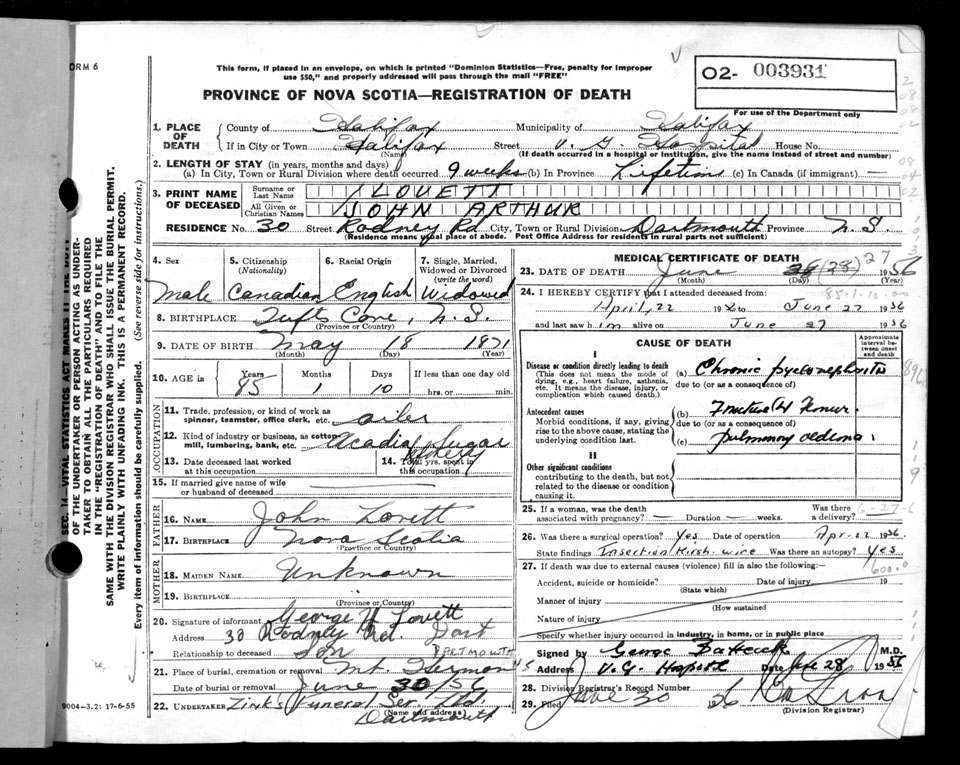 ORM 6
This form, if placed in an envelope, on which is printed "Dominion Statistics—Free, penalty for improper
use $50," and properly addressed will pass through the mail "FREE"
PROVINCE OF NOVA SCOTIA—REGISTRATION OF DEATH
02- 003931
For use of the Department only
1. PLACE OF DEATH
County of Halifax Municipality of Halifax
If in City or Town Halifax Street V. G. Hospital House No.
(Name) (If death occurred in a hospital or institution, give the name instead of street and number)
2. LENGTH OF STAY (in years, months and days)
(a) In City, Town or Rural Division where death occurred 9 weeks (b) In Province Lifetime (c) In Canada (if immigrant) —
3. PRINT NAME OF DECEASED
Surname or Last Name LOVETT
All Given or Christian Names JOHN ARTHUR
RESIDENCE No. 30 Street Rodney Rd City, Town or Rural Division Dartmouth Province N. S.
(Residence means usual place of abode. Post Office Address for residents in rural parts not sufficient)
4. Sex
Male
5. Citizenship
(Nationality)
Canadian
6. Racial Origin
English
7. Single, Married,
Widowed or Divorced
(write the word)
Widowed
8. BIRTHPLACE Tufts Cove, N.S.
(Province or Country)
9. DATE OF BIRTH May 18 1871
(Month) (Day) (Year)
10. AGE in Years Months Days If less than one day old
85 1 10 hrs. or min.
OCCUPATION
11. Trade, profession, or kind of work as
spinner, teamster, office clerk, etc. oiler
12. Kind of industry or business, as cotton
mill, lumbering, bank, etc. Acadia Sugar
Refinery
13. Date deceased last worked
at this occupation
14. Total yrs. spent in
this occupation
15. If married give name of wife
or husband of deceased
FATHER
16. NAME John Lovett
17. BIRTHPLACE Nova Scotia
(Province or Country)
MOTHER
18. MAIDEN NAME Unknown
19. BIRTHPLACE
(Province or Country)
20. Signature of informant George Lovett
Address 30 Rodney Rd. Dart
Relationship to deceased Son DARTMOUTH
21. Place of burial, cremation or removal Mt. Hermon N S
Date of burial or removal June 30/56
22. UNDERTAKER Zinks Funeral Ser Ltd
(Name and address)
Dartmouth
9004—3.21: 17-6-55
MEDICAL CERTIFICATE OF DEATH
23. DATE OF DEATH June 28 (28) 27 1956
(Month) (Day) (Year)
24. I HEREBY CERTIFY that I attended deceased from:
April, 22 1956 to June 27 1956
and last saw him alive on June 27 1956
CAUSE OF DEATH
Approximate interval between onset and death
I
Disease or condition directly leading to death
(This does not mean the mode of
dying, e.g., heart failure, asthenia,
etc. It means the disease, injury, or
complication which caused death.)
(a) Chronic pyelonephritis
due to (or as a consequence of)
Antecedent causes
Morbid conditions, if any, giving
rise to the above cause, stating the
underlying condition last.
(b) Fracture Femur
due to (or as a consequence of)
(c) pulmonary oedema
II
Other significant conditions
contributing to the death, but not
related to the disease or condition
causing it.
25. If a woman, was the death
associated with pregnancy? — Duration — weeks. Was there
a delivery?
26. Was there a surgical operation? Yes Date of operation Apr. 22 1956
State findings Insertion Kirsh. wire Was there an autopsy? Yes
27. If death was due to external causes (violence) fill in also the following:
Accident, suicide or homicide? Date of injury 19
(State which)
Manner of injury
(How sustained)
Nature of injury
Specify whether injury occurred in industry, in home, or in public place
Signed by George M.D.
Address V. G. Hospital Date June 28 1956
28. Division Registrar's Record Number
29. Filed June 30 1956
(Division Registrar)
SEC. 14. VITAL STATISTICS ACT MAKES IT THE DUTY
OF THE UNDERTAKER OR PERSON ACTING AS UNDER-
TAKER TO OBTAIN ALL THE PARTICULARS REQUIRED
IN THE "REGISTRATION OF DEATH" AND TO FILE THE
SAME WITH THE DIVISION REGISTRAR WHO SHALL ISSUE THE BURIAL PERMIT.
WRITE PLAINLY WITH UNFADING INK. THIS IS A PERMANENT RECORD.
Every item of information should be carefully supplied. (See reverse side for instructions.)